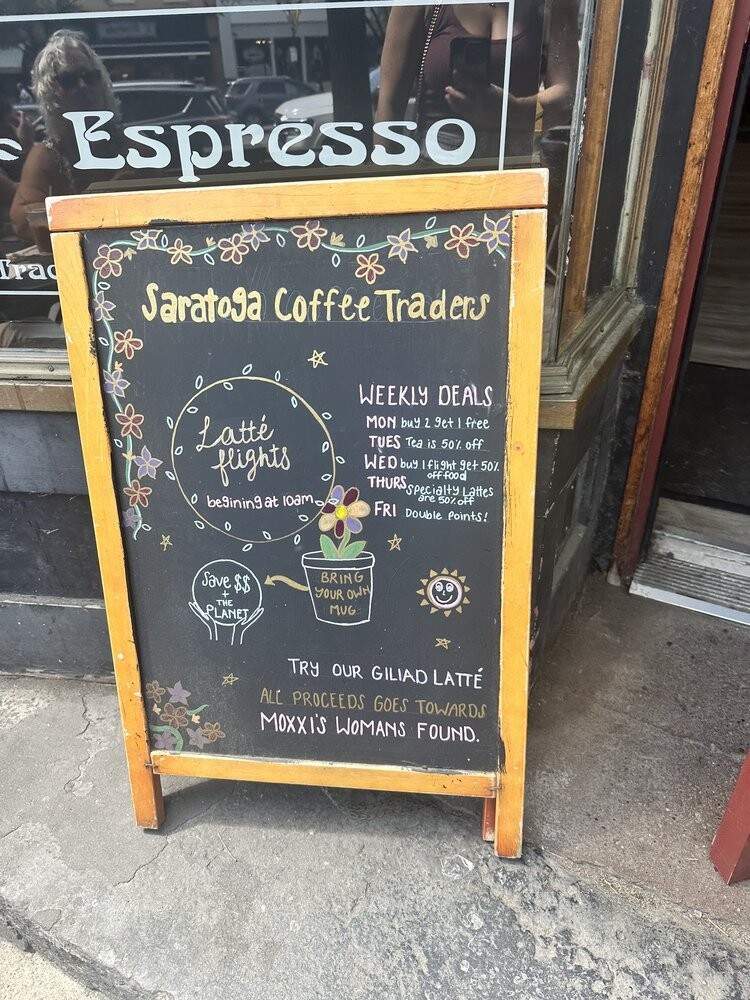 Espresso
Trad
Saratoga Coffee Traders
Latté
flights
begining at 10am
WEEKLY DEALS
MON buy 2 get 1 free
TUES Tea is 50% off
WED buy 1 flight get 50%
off food
THURS Specialty Lattes
are 50% off
FRI Double Points!
Save $$
+
THE
PLANET
BRING
YOUR OWN
MUG
TRY OUR GILIAD LATTÉ
ALL PROCEEDS GOES TOWARDS
MOXXI'S WOMANS FOUND.